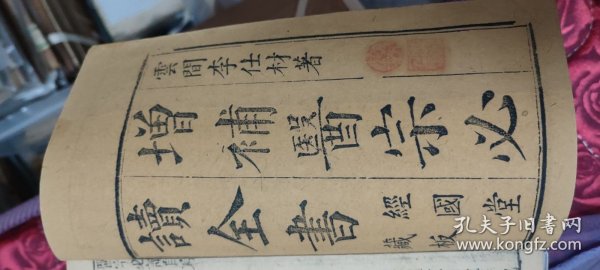 雲間李仕材著
增補醫宗必
讀全書
經國堂
藏板
孔夫子旧书网
www.kongfz.com